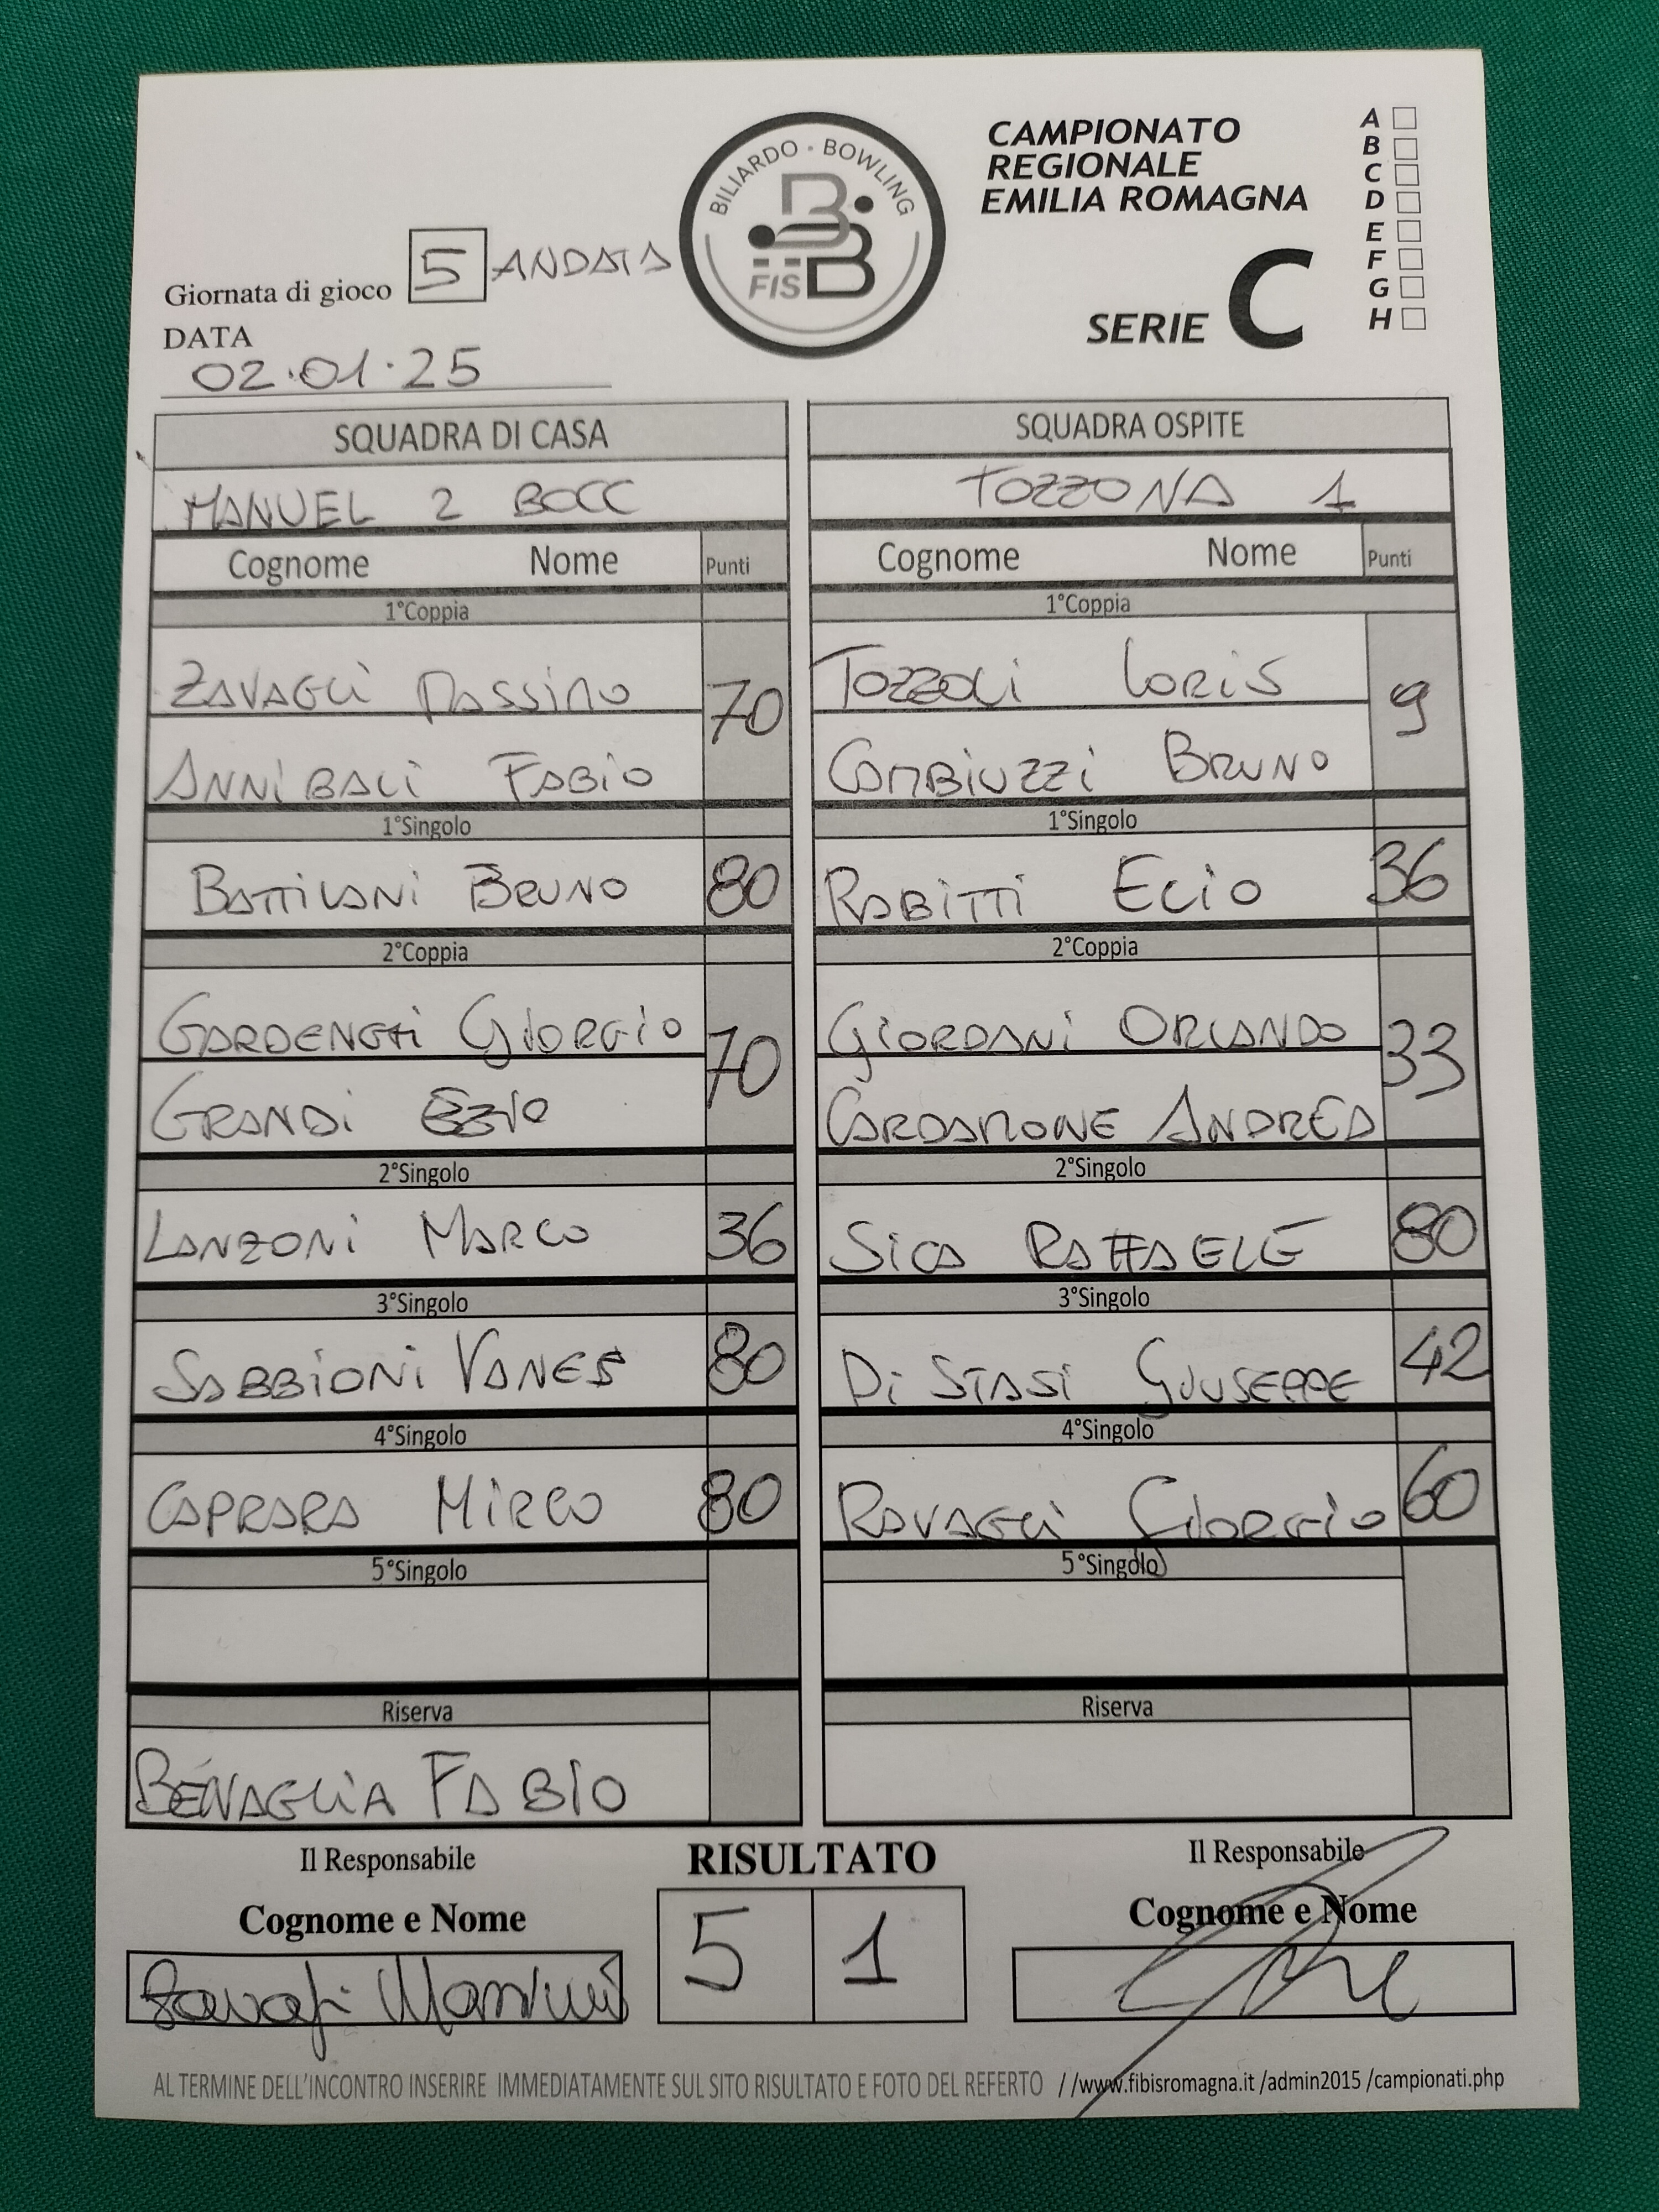 BILIARDO · BOWLING
FISBB
CAMPIONATO
REGIONALE
EMILIA ROMAGNA
SERIE C
A
B
C
D
E
F
G
H
Giornata di gioco 5 ANDATA
DATA
02.01.25
SQUADRA DI CASA
MANUEL 2 BOCC
Cognome Nome Punti
1°Coppia
ZAVAGLI MASSIMO 70
ANNIBALI FABIO
1°Singolo
BATTILANI BRUNO 80
2°Coppia
GARDENGHI GIORGIO 70
GRANDI EZIO
2°Singolo
LANZONI MARCO 36
3°Singolo
SABBIONI VANES 80
4°Singolo
CAPRARA MIRCO 80
5°Singolo
Riserva
BENAGLIA FABIO
SQUADRA OSPITE
TOZZONA 1
Cognome Nome Punti
1°Coppia
TOZZOLI LORIS 9
CAMBIUZZI BRUNO
1°Singolo
RABITTI ECIO 36
2°Coppia
GIORDANI ORLANDO 33
CARDAMONE ANDREA
2°Singolo
SICA RAFFAELE 80
3°Singolo
DI STASI GIUSEPPE 42
4°Singolo
RAVAGLI GIORGIO 60
5°Singolo
Riserva
Il Responsabile
Cognome e Nome
RISULTATO
5 1
Il Responsabile
Cognome e Nome
AL TERMINE DELL'INCONTRO INSERIRE IMMEDIATAMENTE SUL SITO RISULTATO E FOTO DEL REFERTO //www.fibisromagna.it /admin2015 /campionati.php